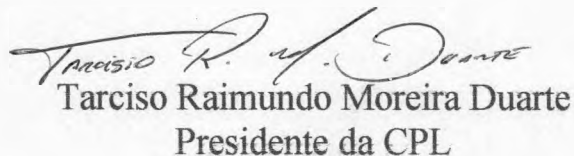 Tarcisio R. M. Duarte
Tarciso Raimundo Moreira Duarte
Presidente da CPL